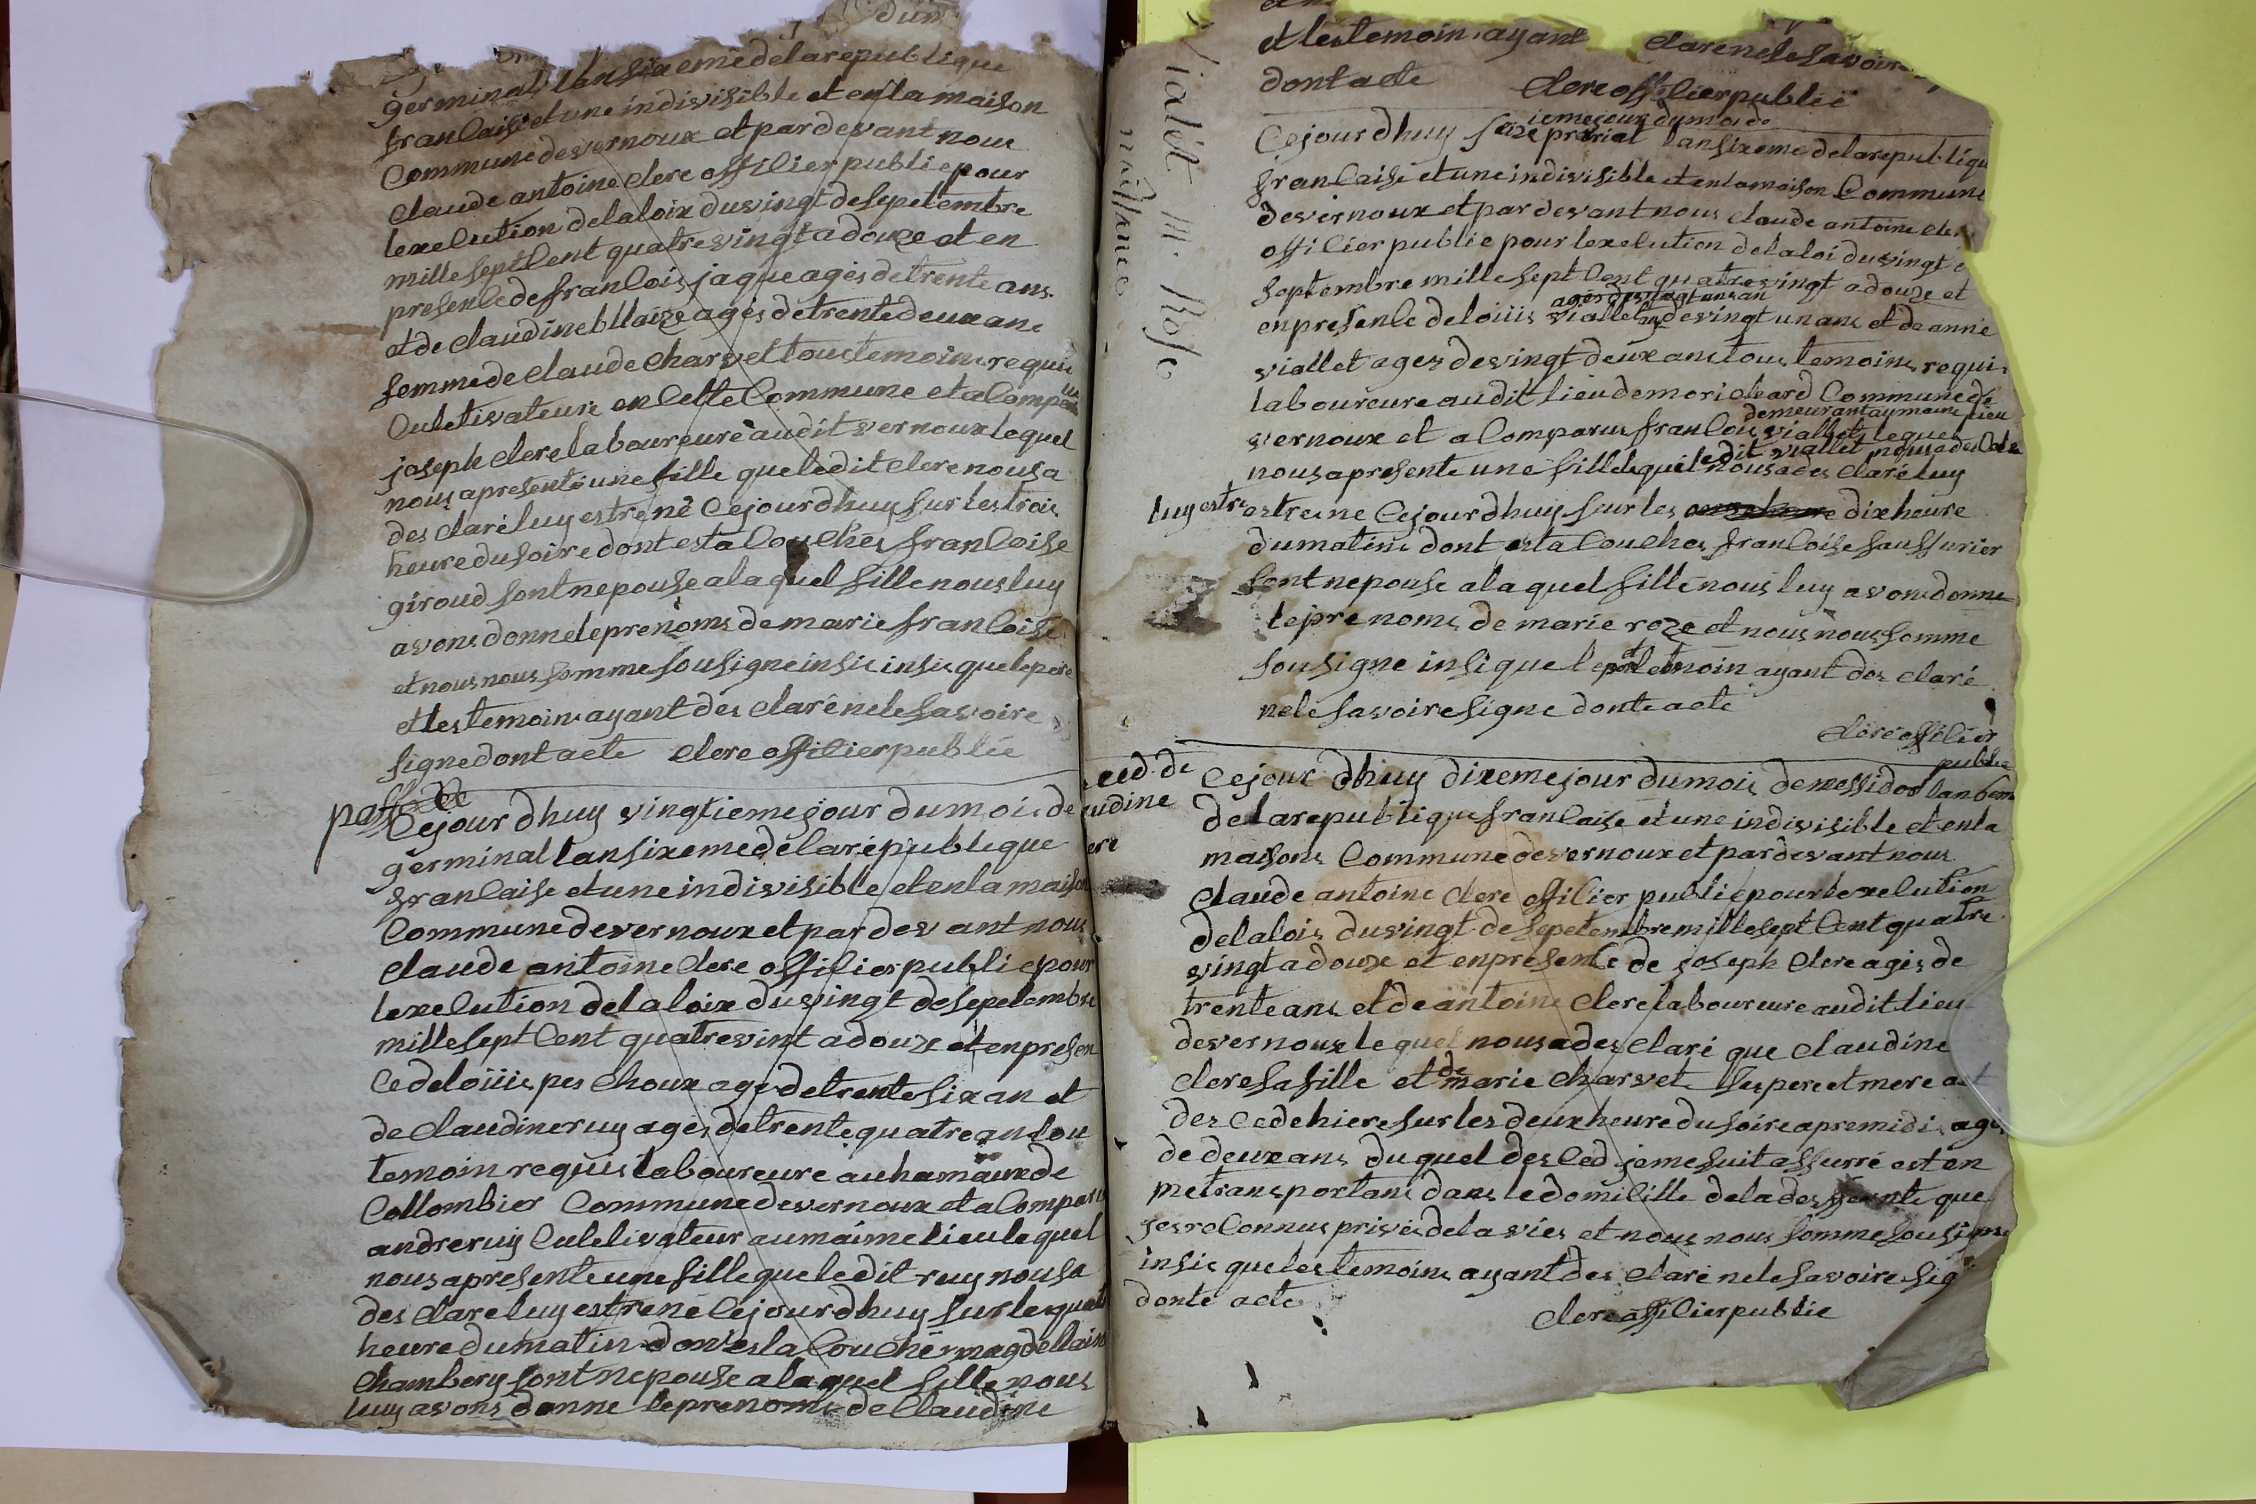 dun
germinal lansixeme delarepublique
francaise et une indivisible et enla maison
Commune devernoux et pardevant nous
claude antoine clerc officier public pour
lexecution delaloix duvingt desepetembre
mille sept Cent quatrevingt adouze et en
presence de francois jaque agés detrente ans
et de claudine bllaize agés detrentedeux ans
femme de claude charvet tous temoins requis
Culetivateure en Cette Commune et a Comparus
joseph clerc laboureure audit vernoux lequel
nous apresenté une fille queledit clerc nousa
des claré luy estre né Cejourdhuy sur les trois
heure dusoire dont esta Couchés francoise
giroud sont nepouse ala quel fille nous luy
avons donné leprenoms de marie francoise
et nous nous somme sousigne insis insis que lepere
et les temoins ayant des claré nele savoire
signe dont acte clerc officier publie
Cejour dhuy vingtieme jour du mois de
germinal lansixeme delarépubleque
francaise et une indivisible et enla maison
Commune devernoux et pardevant nous
claude antoine clerc officier public pour
lexecution delaloix duvingt desepetembre
mille sept Cent quatrevint adouze et enpresen
Ce deloüis pes choux agé detrente six an et
de claudine ruy agés detrente quatre an tou
temoin requis laboureure auhamaux de
Collombier Commune devernoux et a Comparus
andre ruy Culetivateur aumáime lieu lequel
nous apresente une fille queledit ruy nousa
des clare luy estre né Cejourdhuy sur lequat
heure dumatin dont esta Couchér magdellaine
Chambery sont nepouse ala quel fille nous
luy avons donne leprenoms de Claudine
et les temoins ayant clarenele savoire
dont acte clerc officier publie
iemejour dumoide
Cejourdhuy seze prérial lansixeme delarepublique
francaise et une indivisible et enlamaison Commune
devernoux et pardevant nous claude antoine cler
officier public pour lexecution delaloi duvingt
septembre mille sept Cent quatrevingt adouze et
enpresence deloüis viallet devingt unans et de anne
viallet ages devingt deux ans tous temoins requis
laboureure audit lieu de moricleard Commune de
demeurant aymaime lieu
vernoux et a Comparus francois viallet lequel
ledit viallet nousadesclare
nous apresente une fille lequel nousades claré luy
luy estre
estre né Cejourdhuy sur les dix heure
dumatins dont esta Couchés francoise saussurier
sont nepouse ala quel fille nous luy avons donne
leprenoms de marie roze et nous nous somme
sousigne insi que lepere et temoin ayant des claré
nele savoire signe donte acte
clerc officier
public
Viallét M. Rose
naissance
Cejour dhuy dixemejour dumois de messidor lan 6em
delarepublique francaise et une indivisible et enla
maisons Commune devernoux et pardevant nous
claude antoine clerc officier public pour lexecution
delalois duvingt de sepetembre mille sept Cent quatre
vingt adouze et enpresence de joseph clerc agés de
trente ans et de antoine clerc laboureure audit lieu
devernoux le quel nousades claré que claudine
clerc sa fille et de marie charvet ses pere et mere aet
des cede hiere sur les deux heure du soire apremidi agé
de deux ans du quel des Ced jeme suit assurré et en
metransportans dans le domicille delades que
jes reConnus privés dela vies et nous nous somme sousigne
insis que les temoins ayant des claré nele savoire sig
donte acte
clerc officier publie
eced. de
audine
erc